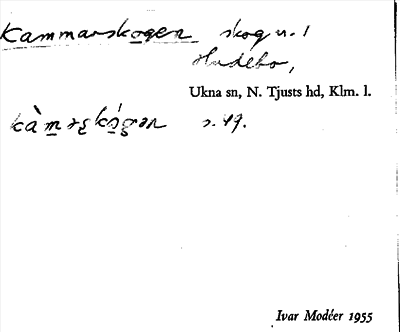 Kammarskogen skog u. l
Hudebo,
Ukna sn, N. Tjusts hd, Klm. l.
kàmarskó̱gən s. 49.
Ivar Modéer 1955